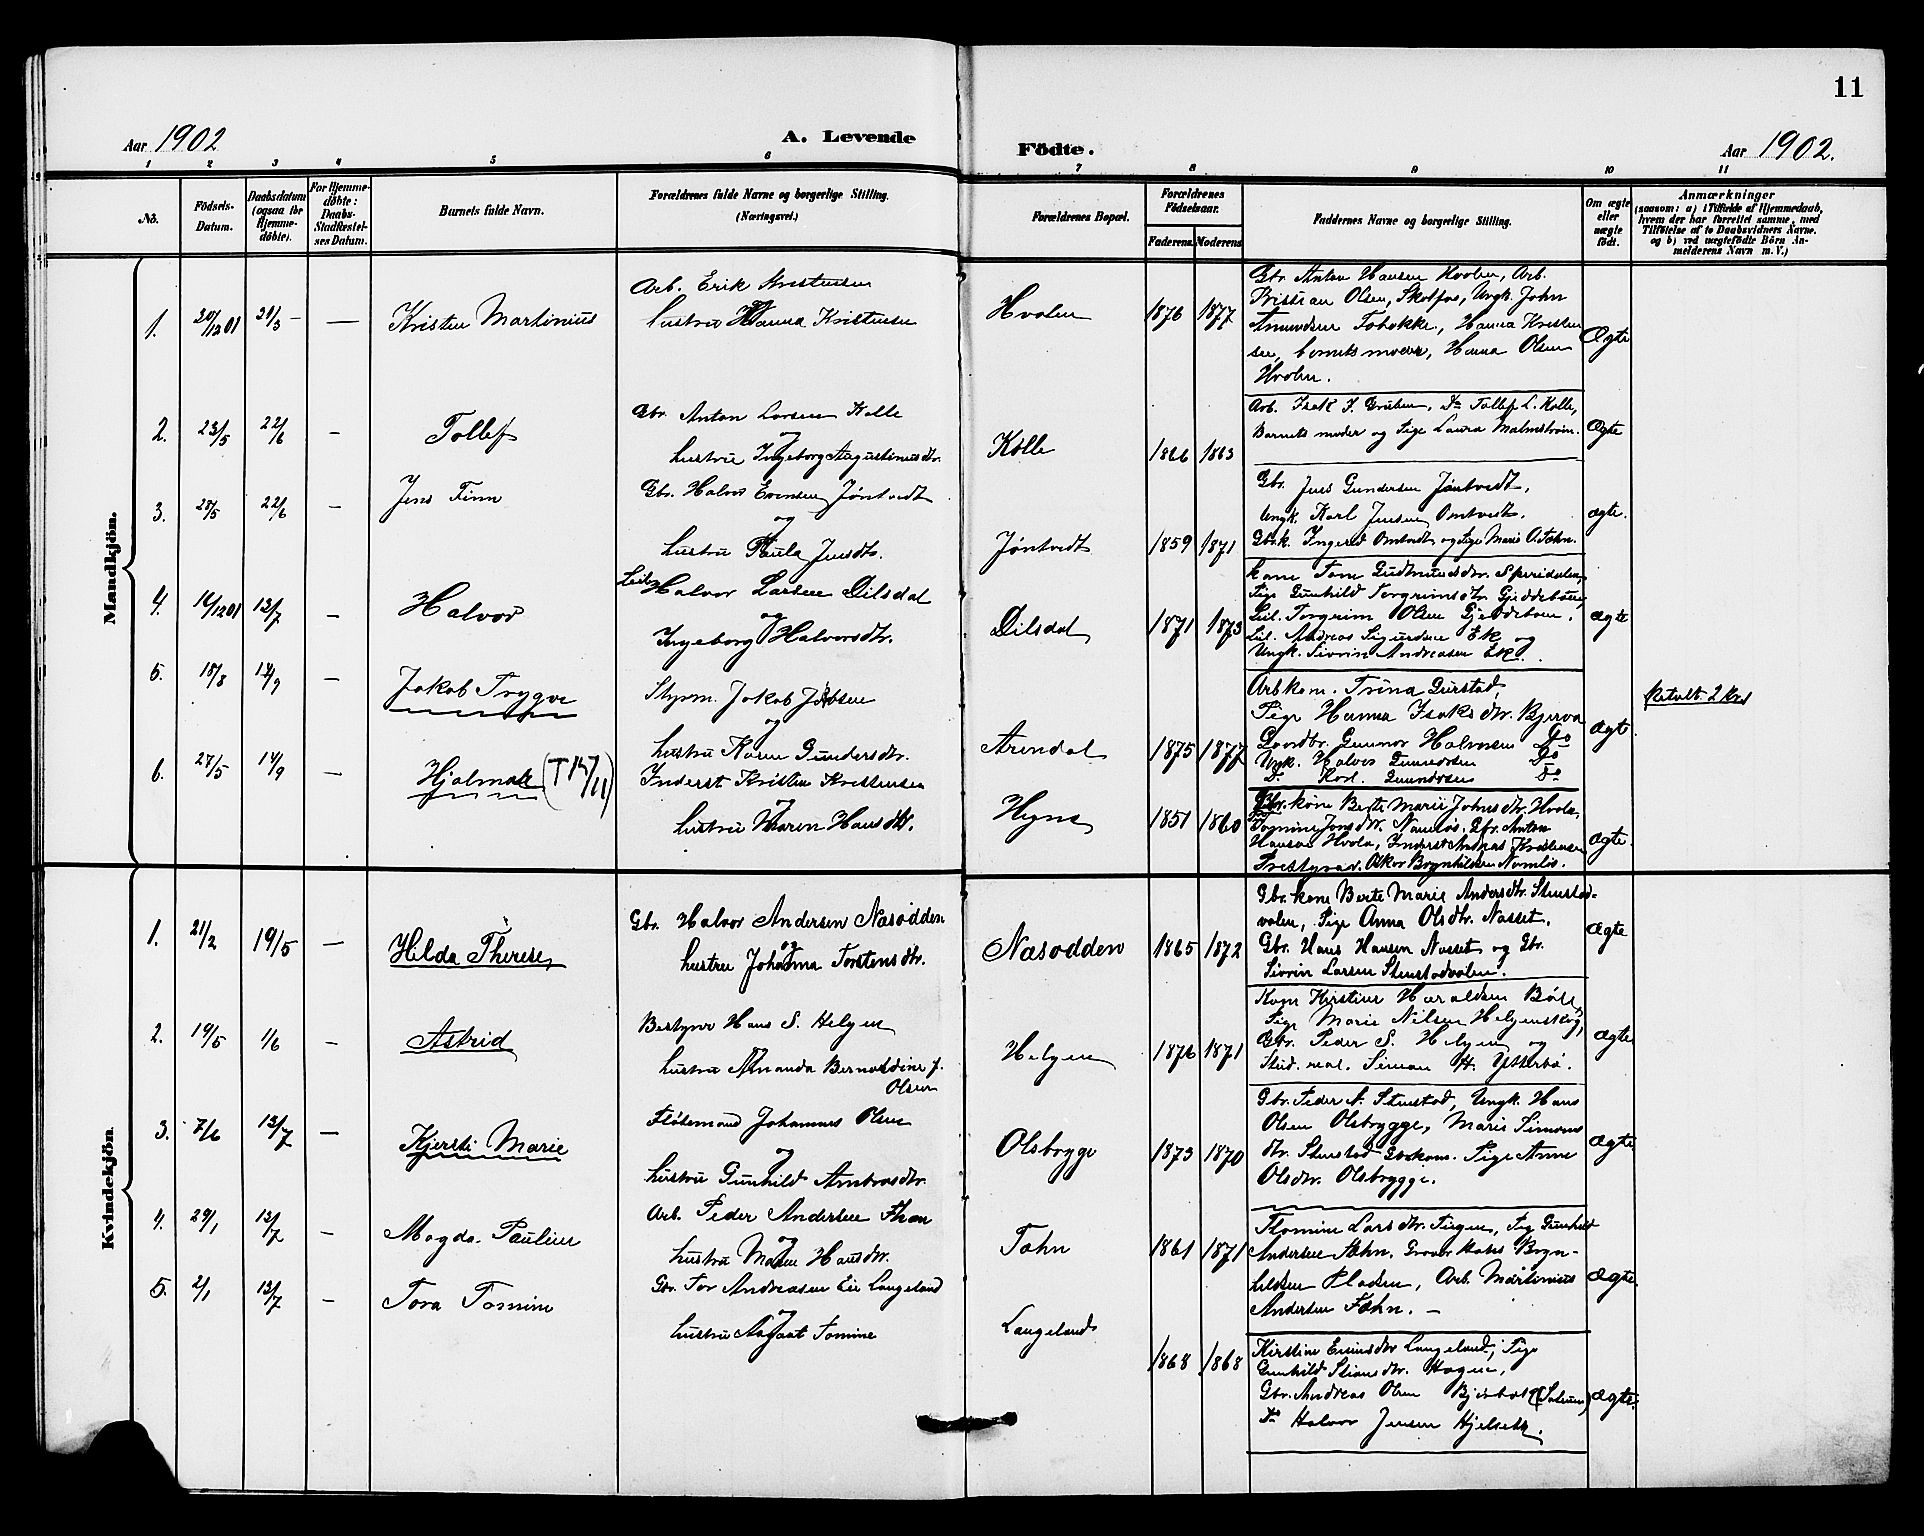 11
Aar 1902
A. Levende
Födte.
Aar 1902.
1 2 3 4 5 6 7 8 9 10 11
No.
Födsels-
Datum.
Daabsdatum
(ogsaa for
Hjemme-
döbte).
For Hjemme-
döbte:
Daabs-
Stadfæstel-
ses Datum.
Barnets fulde Navn.
Forældrenes fulde Navne og borgerlige Stilling.
(Næringsvei.)
Forældrenes Bopæl.
Forældrenes
Födselsaar.
Faderens.
Moderens.
Faddernes Navne og borgerlige Stilling.
Om ægte
eller
uægte
født.
Anmærkninger
(saasom: a) i Tilfælde af Hjemmedaab,
hvem der har forrettet samme, med
Tilföielse af to Daabsvidners Navne.
og b) ved uægtefödte Börn An-
melderens Navn m. V.)
Mandkjön.
1. 20/12 01 31/3 — — Kristen Martinius
Arb. Erik Kristensen
hustru Hanna Kristense
Hvolen 1876 1877
Gbr. Anton Hansen Hvolen, Arb.
Kristian Olsen, Skotfos, Ungk. John
Amundsen Tobokke, Hanna Kristen
sen, barnets moder, Hanna Olsen
Hvolen.
Ægte
2. 23/5 22/6 — Tollef
Gbr. Anton Larsen Kolle
og
hustru Ingeborg Augustinusdtr.
Kolle 1866 1863
Arb. Isak I. Gruben, Do Tollef L. Kolle,
Barnets moder og Pige Laura Malmstrøm.
Ægte
3. 25/5 22/6 — Jens Finn
Gbr. Halvor Evensen Jøntvedt
og
hustru Paula Jensdtr.
Jøntvedt 1859 1871
Gbr. Jens Gundersen Jøntvedt,
Ungk. Karl Jensen Omtvedt.
Gbk. Ingerid Omtvedt og Pige Marie O. Tohn.
ægte.
4. 16/12 01 13/7 — Halvor
Leil. Halvor Larsen Dilsdal
og
Ingeborg Halvorsdtr.
Dilsdal 1871 1873
kone Tone Gudmundsdtr. Sperrdalen,
Pige Gunhild Torgrimsdtr. Gjeddeboen,
Leil. Torgrim Olsen Gjeddeboen.
Leil. Andreas Sigurdsen Ek og
Ungk. Sivrin Andreasen Ek.
ægte
5. 18/8 14/9 — Jakob Trygve
Styrm. Jakob Jakobsen
og
hustru Karen Gundersdtr.
Arendal 1875 1877
Arbkone. Trina Gurstad,
Pige Hanna Isaksdtr. Bjerva
Gaardbr. Gunnar Halvorsen Do
Ungk. Halvor Gunnarsen Do
D. Karl. Gunnarsen Do
Ægt
betalt 2 kr
6. 27/5 14/9 — Hjalmar (T 147/11)
Inderst Kristen Kristensen
og
hustru Maren Hansdtr.
Hegna 1851 1860
Gbr. kone Berte Marie Johnsdtr. Hvolen,
Tomine Jonsdtr. Namløs, Gbr. Anton
Hansen Hvola, Inderst Andreas Kristensen
Prestgrav. Oskar Brynhildsen Namløs.
ægte.
Kvindekjön.
1. 21/2 19/5 — Hilda Therese
Gbr. Halvor Andersen Nasodden
og
hustru Johanna Torstensdtr.
Nasodden 1865 1872
Gbr. kone Berte Marie Andersdtr. Stenstad-
valen, Pige Anna Olsdtr. Nasset.
Gbr. Hans Hansen Nasset og Gbr.
Sivrin Larsen Stenstadvalen.
ægte
2. 19/5 1/6 — Astrid
Bestyrer Hans S. Helgen
og
hustru Amanda Bernoldine f.
Olsen
Helgen 1876 1871
Kone Kirstine Haraldsen Bøle,
Pige Marie Nilsen Helgenskog,
Gbr. Peder S. Helgen og
Stud. real. Simon H. Ytterbø.
ægte
3. 7/6 13/7 — Kjersti Marie
Fløtemand Johannes Olsen
og
hustru Gunhild Ambrosdtr.
Olsbrygge 1873 1870
Gbr. Peder N. Stenstad, Ungk. Hans
Olsen Olsbrygge, Marie Simons
dtr. Stenstad Gbrkone. Pige Anne
Olsdtr. Olsbrygge.
ægte
4. 29/1 13/7 — Magda Pauline
Arb. Peder Andersen Fæhn
og
hustru Maren Hansdtr.
Fæhn 1861 1871
Thomine Larsdtr. Tirgen, Pige Gunhild
Andersen Fæhn. Graver Hans Bryn-
hildsen Pladsen, Arb. Martinius
Andersen Fæhn. —
ægte
5. 2/1 13/7 — Tora Tomine
Gbr. Tor Andreasen Eie Langeland
og
hustru Aagaat Tomine
Langeland 1868 1868
Kirstine Evensdtr. Langeland, Pige
Gunhild Stiansdtr. Hagen,
Gbr. Andreas Olsen Bjerbolt (Solum)
Do Halvor Jensen Hjelseth.
ægte.